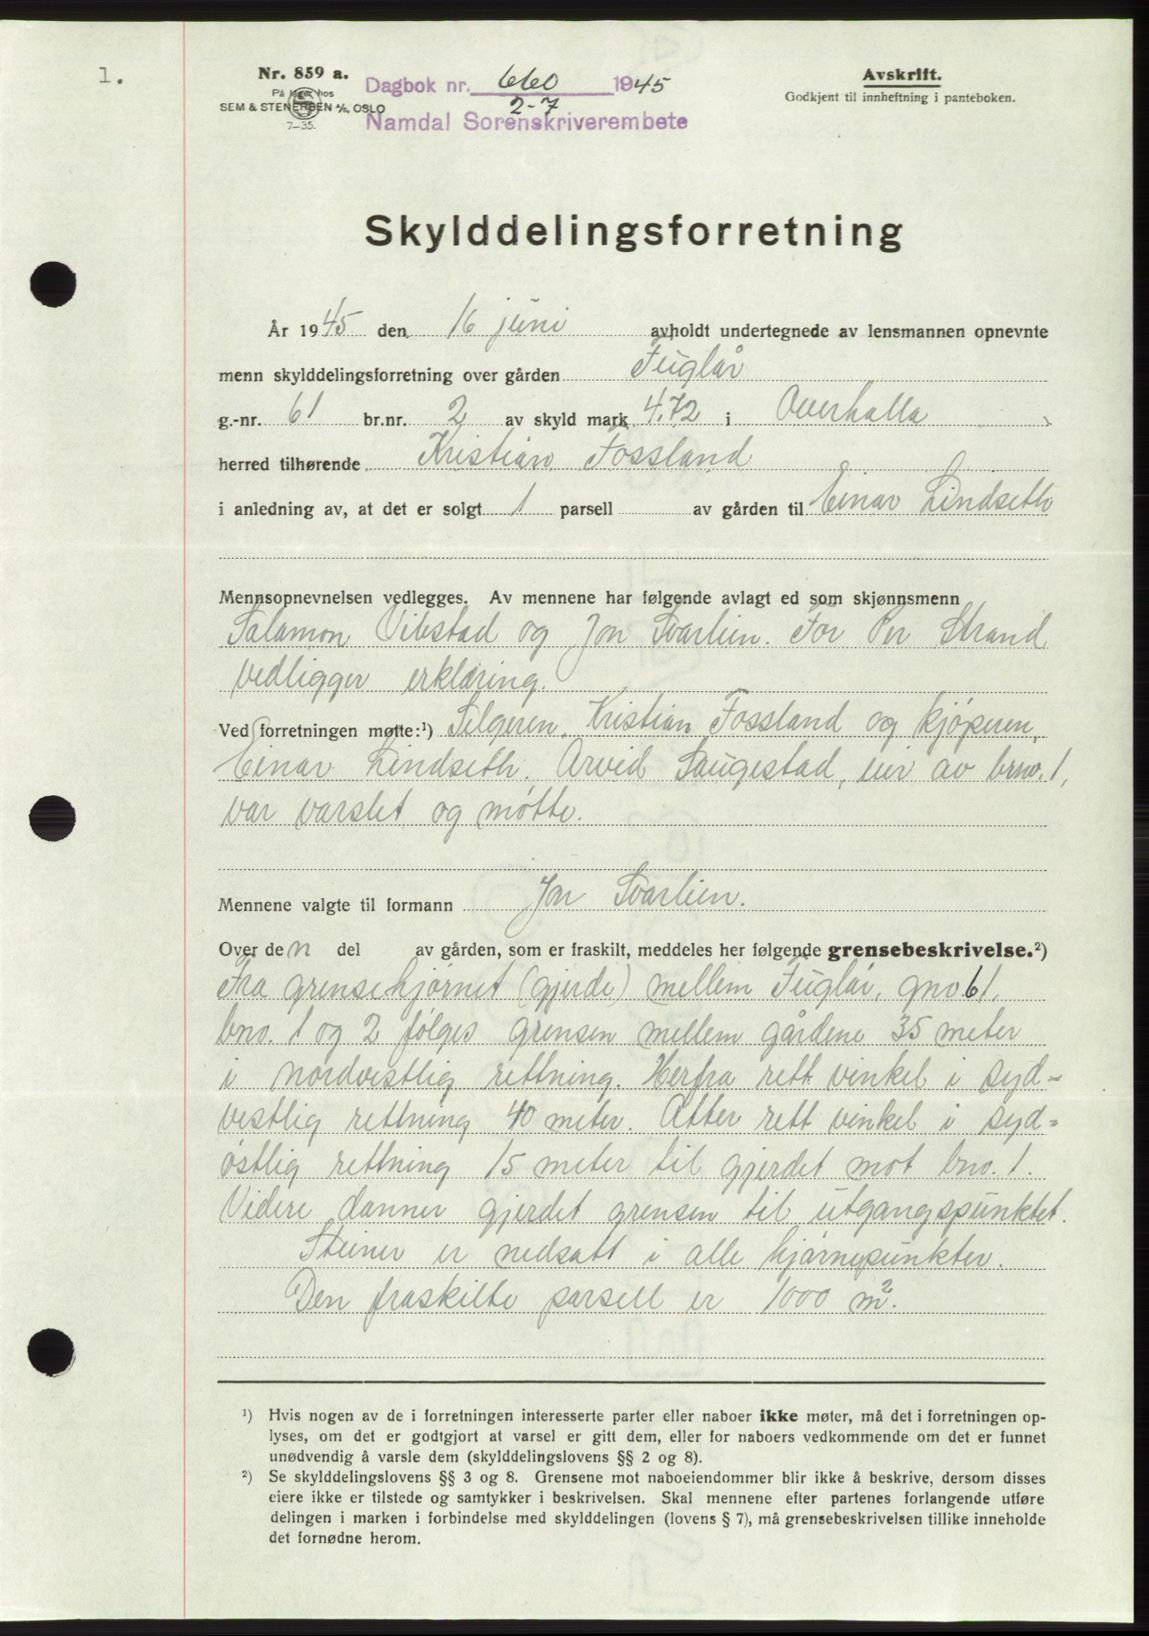 1.
Nr. 859 a.
På lager hos
SEM & STENERSEN A/S, OSLO
7–35.
Dagbok nr. 660 1945
2-7
Namdal Sorenskriverembete
Avskrift.
Godkjent til innheftning i panteboken.
Skylddelingsforretning
År 1945 den 16 juni avholdt undertegnede av lensmannen opnevnte
menn skylddelingsforretning over gården Fuglår
g.-nr. 61 br.nr. 2 av skyld mark 4.72 i Overhalla
herred tilhørende Kristian Fossland
i anledning av, at det er solgt 1 parsell av gården til Einar Lindseth
Mennsopnevnelsen vedlegges. Av mennene har følgende avlagt ed som skjønnsmenn
Salamon Vibstad og Jon Svarlien. For Per Strand
vedligger erklæring.
Ved forretningen møtte:¹) Selgeren, Kristian Fossland og kjøperen,
Einar Lindseth. Arvid Saugestad, eier av brno. 1,
var varslet og møtte.
Mennene valgte til formann Jon Svarlien.
Over den del av gården, som er fraskilt, meddeles her følgende grensebeskrivelse.²)
Fra grensehjørnet (gjerde) mellem Fuglår, gno 61,
bno. 1 og 2 følges grensen mellem gårdene 35 meter
i nordvestlig rettning. Herfra rett vinkel i syd-
vestlig rettning 40 meter. Atter rett vinkel i syd-
østlig rettning 15 meter til gjerdet mot bno. 1.
Videre danner gjerdet grensen til utgangspunktet.
Steiner er nedsatt i alle hjørnepunkter.
Den fraskilte parsell er 1000 m².
¹) Hvis nogen av de i forretningen interesserte parter eller naboer ikke møter, må det i forretningen op-
lyses, om det er godtgjort at varsel er gitt dem, eller for naboers vedkommende om det er funnet
unødvendig å varsle dem (skylddelingslovens §§ 2 og 8).
²) Se skylddelingslovens §§ 3 og 8. Grensene mot naboeiendommer blir ikke å beskrive, dersom disses
eiere ikke er tilstede og samtykker i beskrivelsen. Skal mennene efter partenes forlangende utføre
delingen i marken i forbindelse med skylddelingen (lovens § 7), må grensebeskrivelsen tillike inneholde
det fornødne herom.